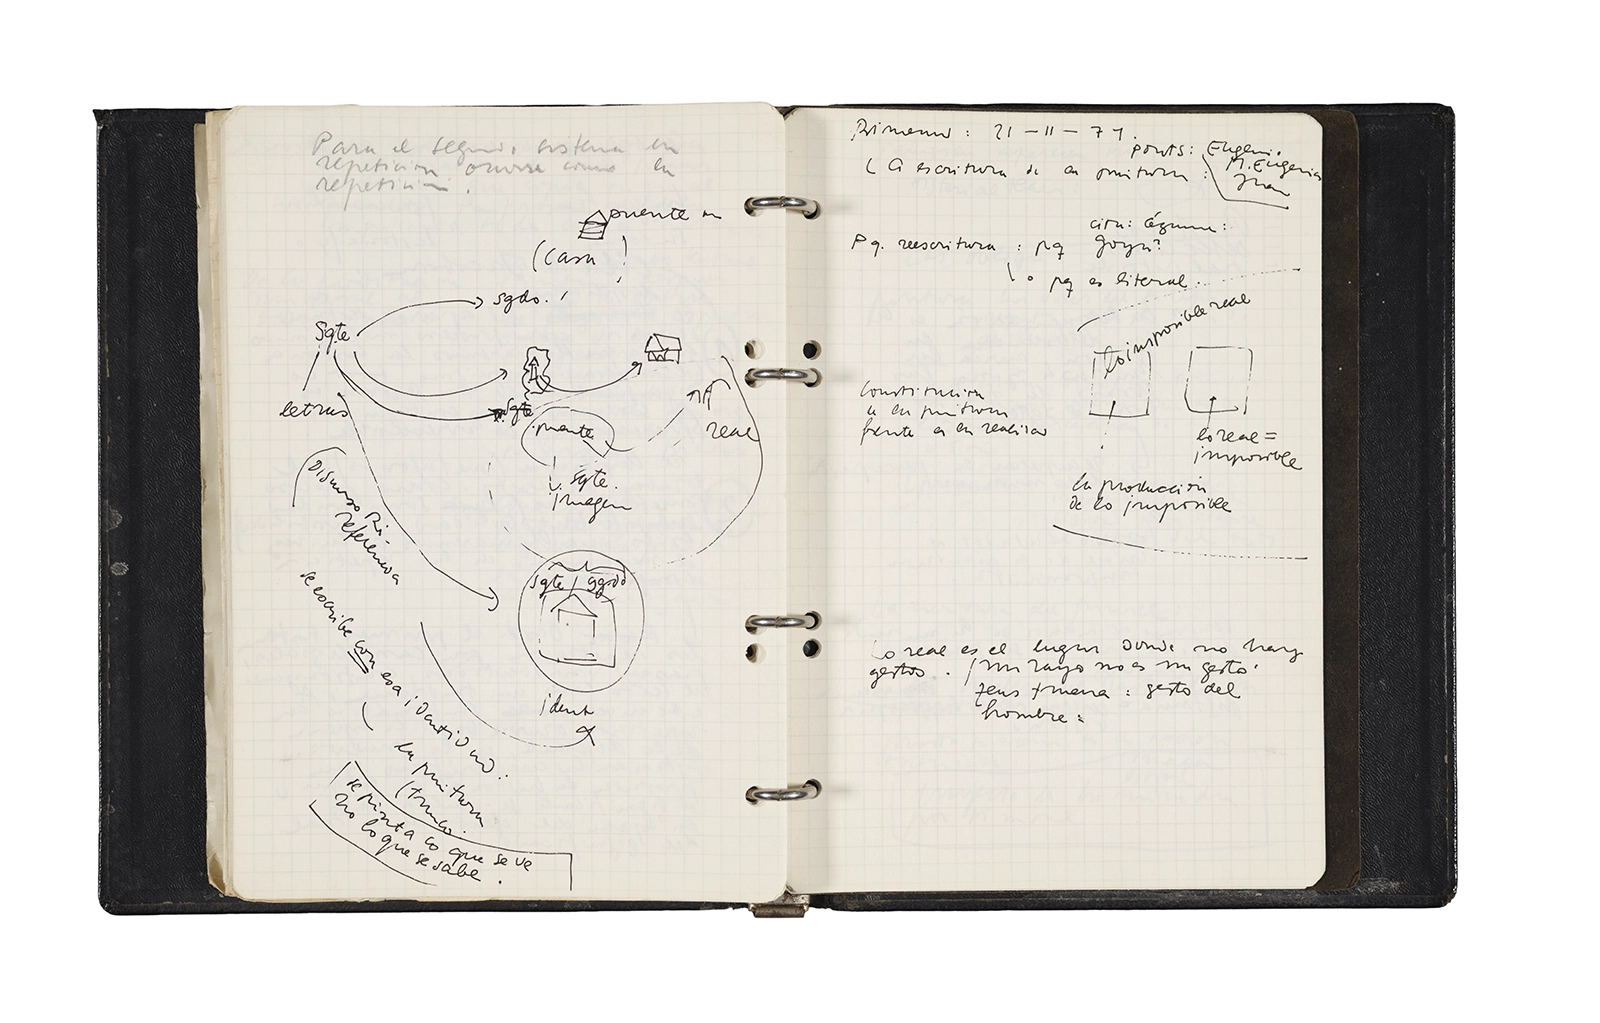 Para el segundo sistema la
repetición ocurre como la
repetición.
puente
(casa)
sgdo.
Sgte
letras
sgte
puente
real
sgte.
imagen
Discurso
referencia
sgte / sgdo
ident
se escribe con esa identidad:
la pintura
se pinta lo que se ve
no lo que se sabe.
21-II-77.
ponts: Eugeni.
M. Eugenia
Juan
La escritura de la pintura:
cita:
Pq. reescritura: pq Goya?
o pq es literal.
Lo imposible real
Constitución
de la pintura
frente a la realidad
lo real =
imposible
la producción
de lo imposible
Lo real es el lugar donde no hay
gestos. / un rayo no es un gesto.
Zeus truena: gesto del
hombre: